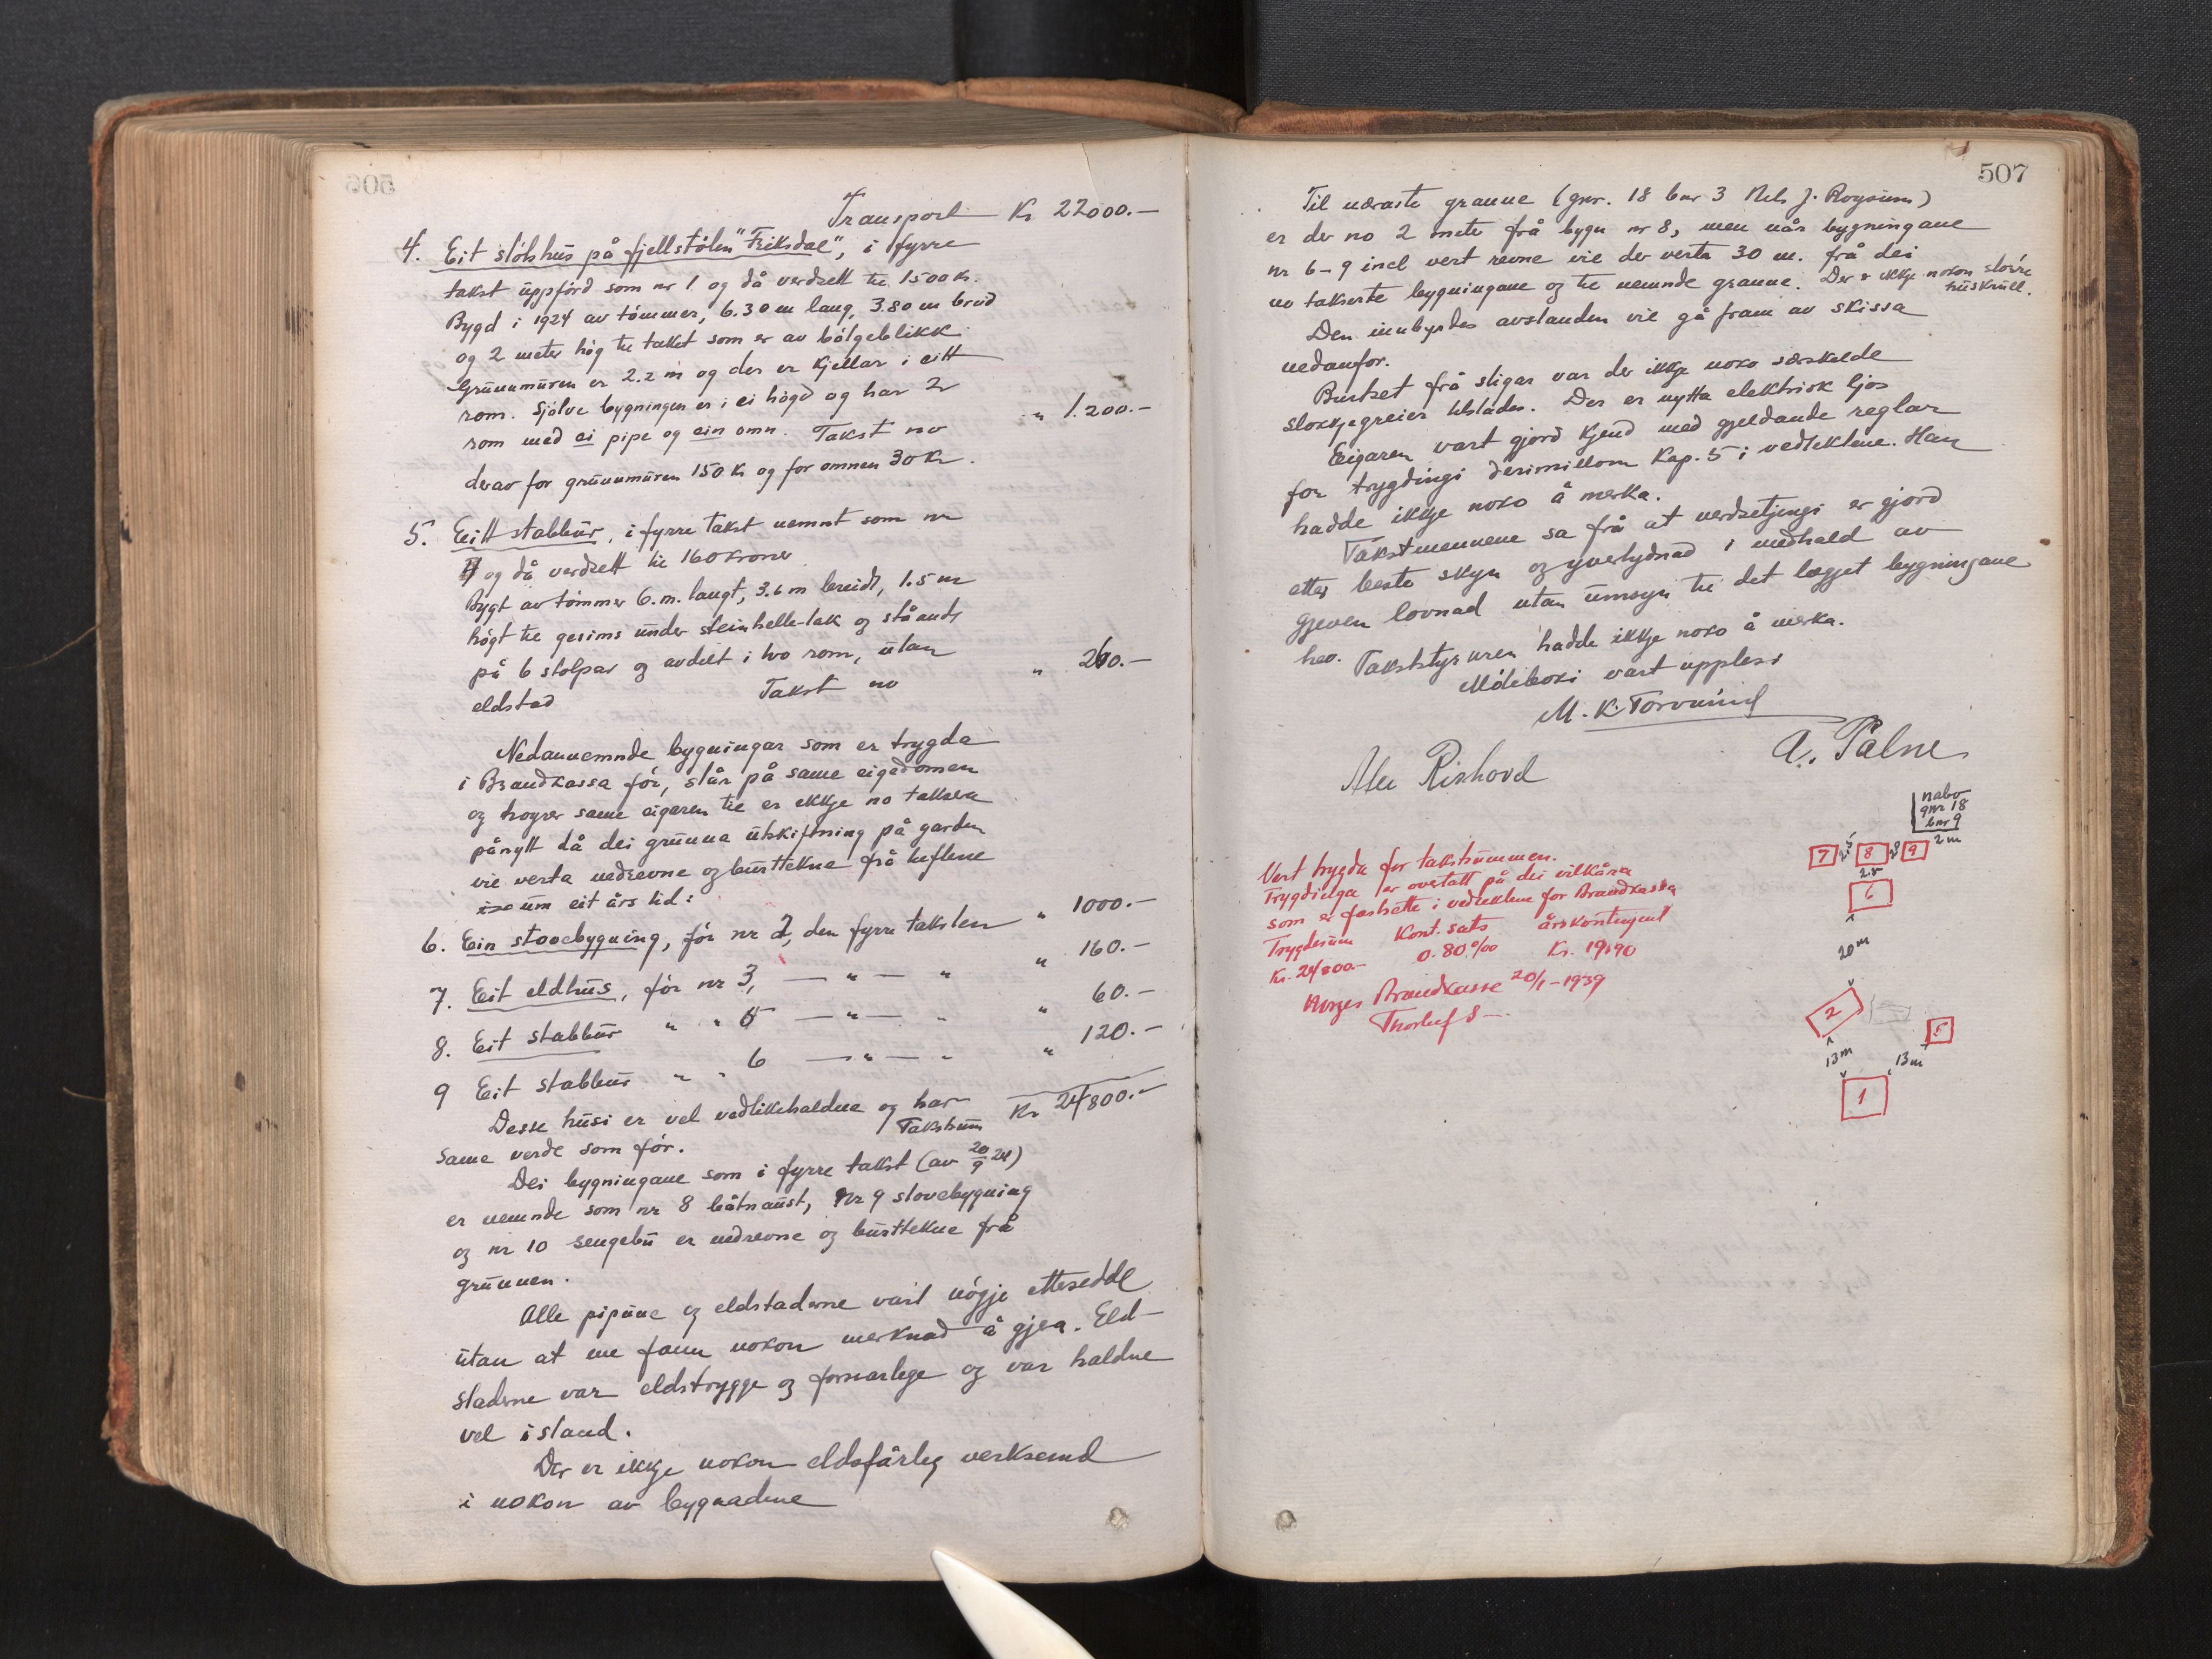 506
Transport Kr 22000.-
4. Eit stölshus på fjellstölen "Friksdal", i fyrre
takst uppförd som nr 1 og då verdsett til 1500 kr.
Bygd i 1924 av tömmer, 6.30 m lang, 3.80 m breid
og 2 meter hög til taket som er av bölgeblikk.
Grunnmuren er 2.2 m og der er kjellar i eitt
rom. Sjölve bygningen er i ei högd og har 2
rom med ei pipe og ein omn. Takst no " 1.200.-
derav for grunnmuren 150 kr og for omnen 30 kr.
5. Eitt stabbur, i fyrre takst nemnt som nr
4 og då verdsett til 160 kroner
Bygt av tömmer 6.m. langt, 3.6 m breidt, 1.5 m
högt til gesims under steinhelle-tak og ståande
på 6 stolpar og avdelt i tvo rom, utan
eldstad Takst no " 260.-
Nedannemnde bygningar som er trygda
i Brandkassa för, står på same eigedomen
og höyrer same eigaren til er ikkje no taksera
pånytt då dei grunna utskiftning på garden
vil verta nedrevne og burttekne frå tuftene
um eit års tid:
6. Ein stovebygning, för nr 2, den fyrre taksten " 1000.-
7. Eit eldhus, för nr 3, — " — " " 160.-
8. Eit stabbur " " 5 — " — " " 60.-
9 Eit stabbur " " 6 — " — " " 120.-
Desse husi er vel vedlikehaldne og har
Takstsum Kr 24800.-
same verde som för.
Dei bygningane som i fyrre takst (av 20/9 24)
er nemnde som nr 8 båtnaust, Nr 9 stovebygning
og nr 10 sengebu er nedrevne og burttekne frå
grunnen.
Alle pipune og eldstaderne vart nögje ettersedde
utan at me fann nokon merknad å gjera. Eld-
staderne var eldstrygge og forsvarlege og var haldne
vel i stand.
Der er ikkje nokon eldsfårleg verksemd
i nokon av bygnadene
507
Til næraste granne (gnr. 18 bnr 3 Nels J. Röysum)
er der no 2 meter frå bygn nr 8, men når bygningane
nr 6-9 incl vert revne vil der verta 30 m. frå dei
no takserte bygningane og til nemnde granne. Der er ikkje nokon större
huskrull.
Den innbyrdes avstanden vil gå fram av skissa
nedanfor.
Burtset frå stigar var der ikkje noko særskilde
slökkjegreier tilstades. Der er nytta elektrisk ljos
Eigaren vart gjord kjend med gjeldande reglar
for trygdingi derimillom Kap. 5 i vedtektene. Han
hadde ikkje noko å merka.
Takstmennene sa frå at verdsetjingi er gjord
etter beste skyn og yvertydnad i medhald av
gjeven lovnad utan umsyn til det lægjet bygningane
hev. Takststyraren hadde ikkje noko å merka.
Möteboki vart upplesi
M. K. Torvund
A. Målsnes
Vert trygda for takstsummen.
Trygdinga er overtatt på dei vilkåra
som er fastsette i vedtektene for Brandkassa
Trygdesum Kont. sats årskontingent
Kr. 24800.- 0.80‰ Kr. 19.90
Norges Brandkasse 20/1-1939
nabo
gnr 18
bnr 9
2 m
7 8 9
2.5
6
20 m
2
5
13 m 13 m
1